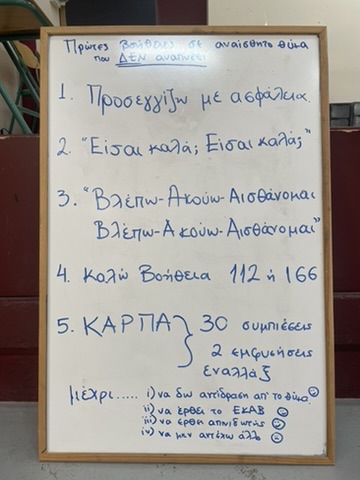 Πρώτες βοήθειες σε αναίσθητο θύμα
που ΔΕΝ αναπνέει
1. Προσεγγίζω με ασφάλεια.
2. "Είσαι καλά; Είσαι καλά;"
3. "Βλέπω-Ακούω-Αισθάνομαι
Βλέπω-Ακούω-Αισθάνομαι"
4. Καλώ Βοήθεια 112 ή 166
5. ΚΑΡΠΑ } 30 συμπιέσεις
2 εμφυσήσεις
εναλλάξ
μέχρι..... i) να δω αντίδραση απ' το θύμα
ii) να έρθει το ΕΚΑΒ
iii) να έρθει απινιδωτής
iv) να μην αντέχω άλλο